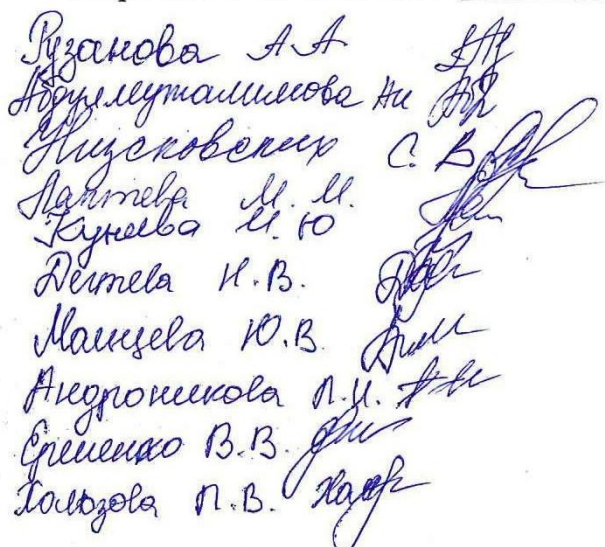 Рузанова А А
Абдулмуталимова Ни
Низсковских С. В
Лаптева М. М.
Кунева И. Ю
Дегтева Н. В.
Малцева Ю. В.
Андроникова Л. Н.
Еременко В. В.
Хользова Л. В.